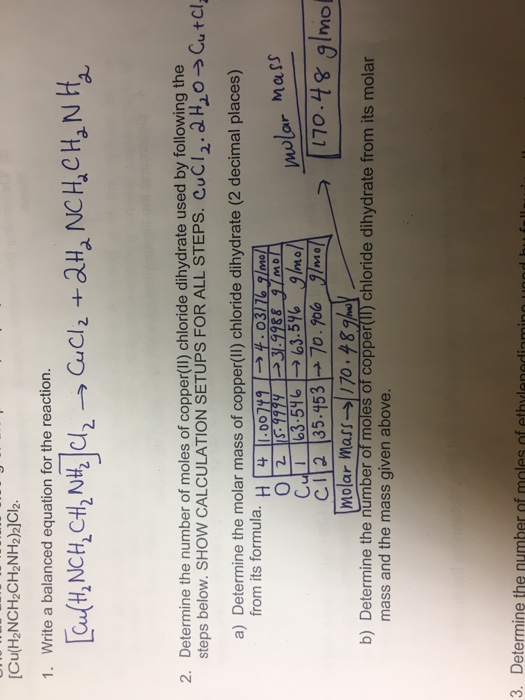 [Cu(H₂NCH₂CH₂NH₂)₂]Cl₂.
1. Write a balanced equation for the reaction.
[Cu(H₂NCH₂CH₂NH₂]Cl₂ → CuCl₂ + 2H₂NCH₂CH₂NH₂
2. Determine the number of moles of copper(II) chloride dihydrate used by following the
steps below. SHOW CALCULATION SETUPS FOR ALL STEPS. CuCl₂·2H₂O → Cu+Cl₂
a) Determine the molar mass of copper(II) chloride dihydrate (2 decimal places)
from its formula.
H 4 1.00749 → 4.03176 g/mol
O 2 15.9994 → 31.9988 g/mol
Cu 1 63.546 → 63.546 g/mol
Cl 2 35.453 → 70.906 g/mol
molar mass → 170.48 g/mol
molar mass
170.48 g/mol
b) Determine the number of moles of copper(II) chloride dihydrate from its molar
mass and the mass given above.
3. Determine the number of moles of